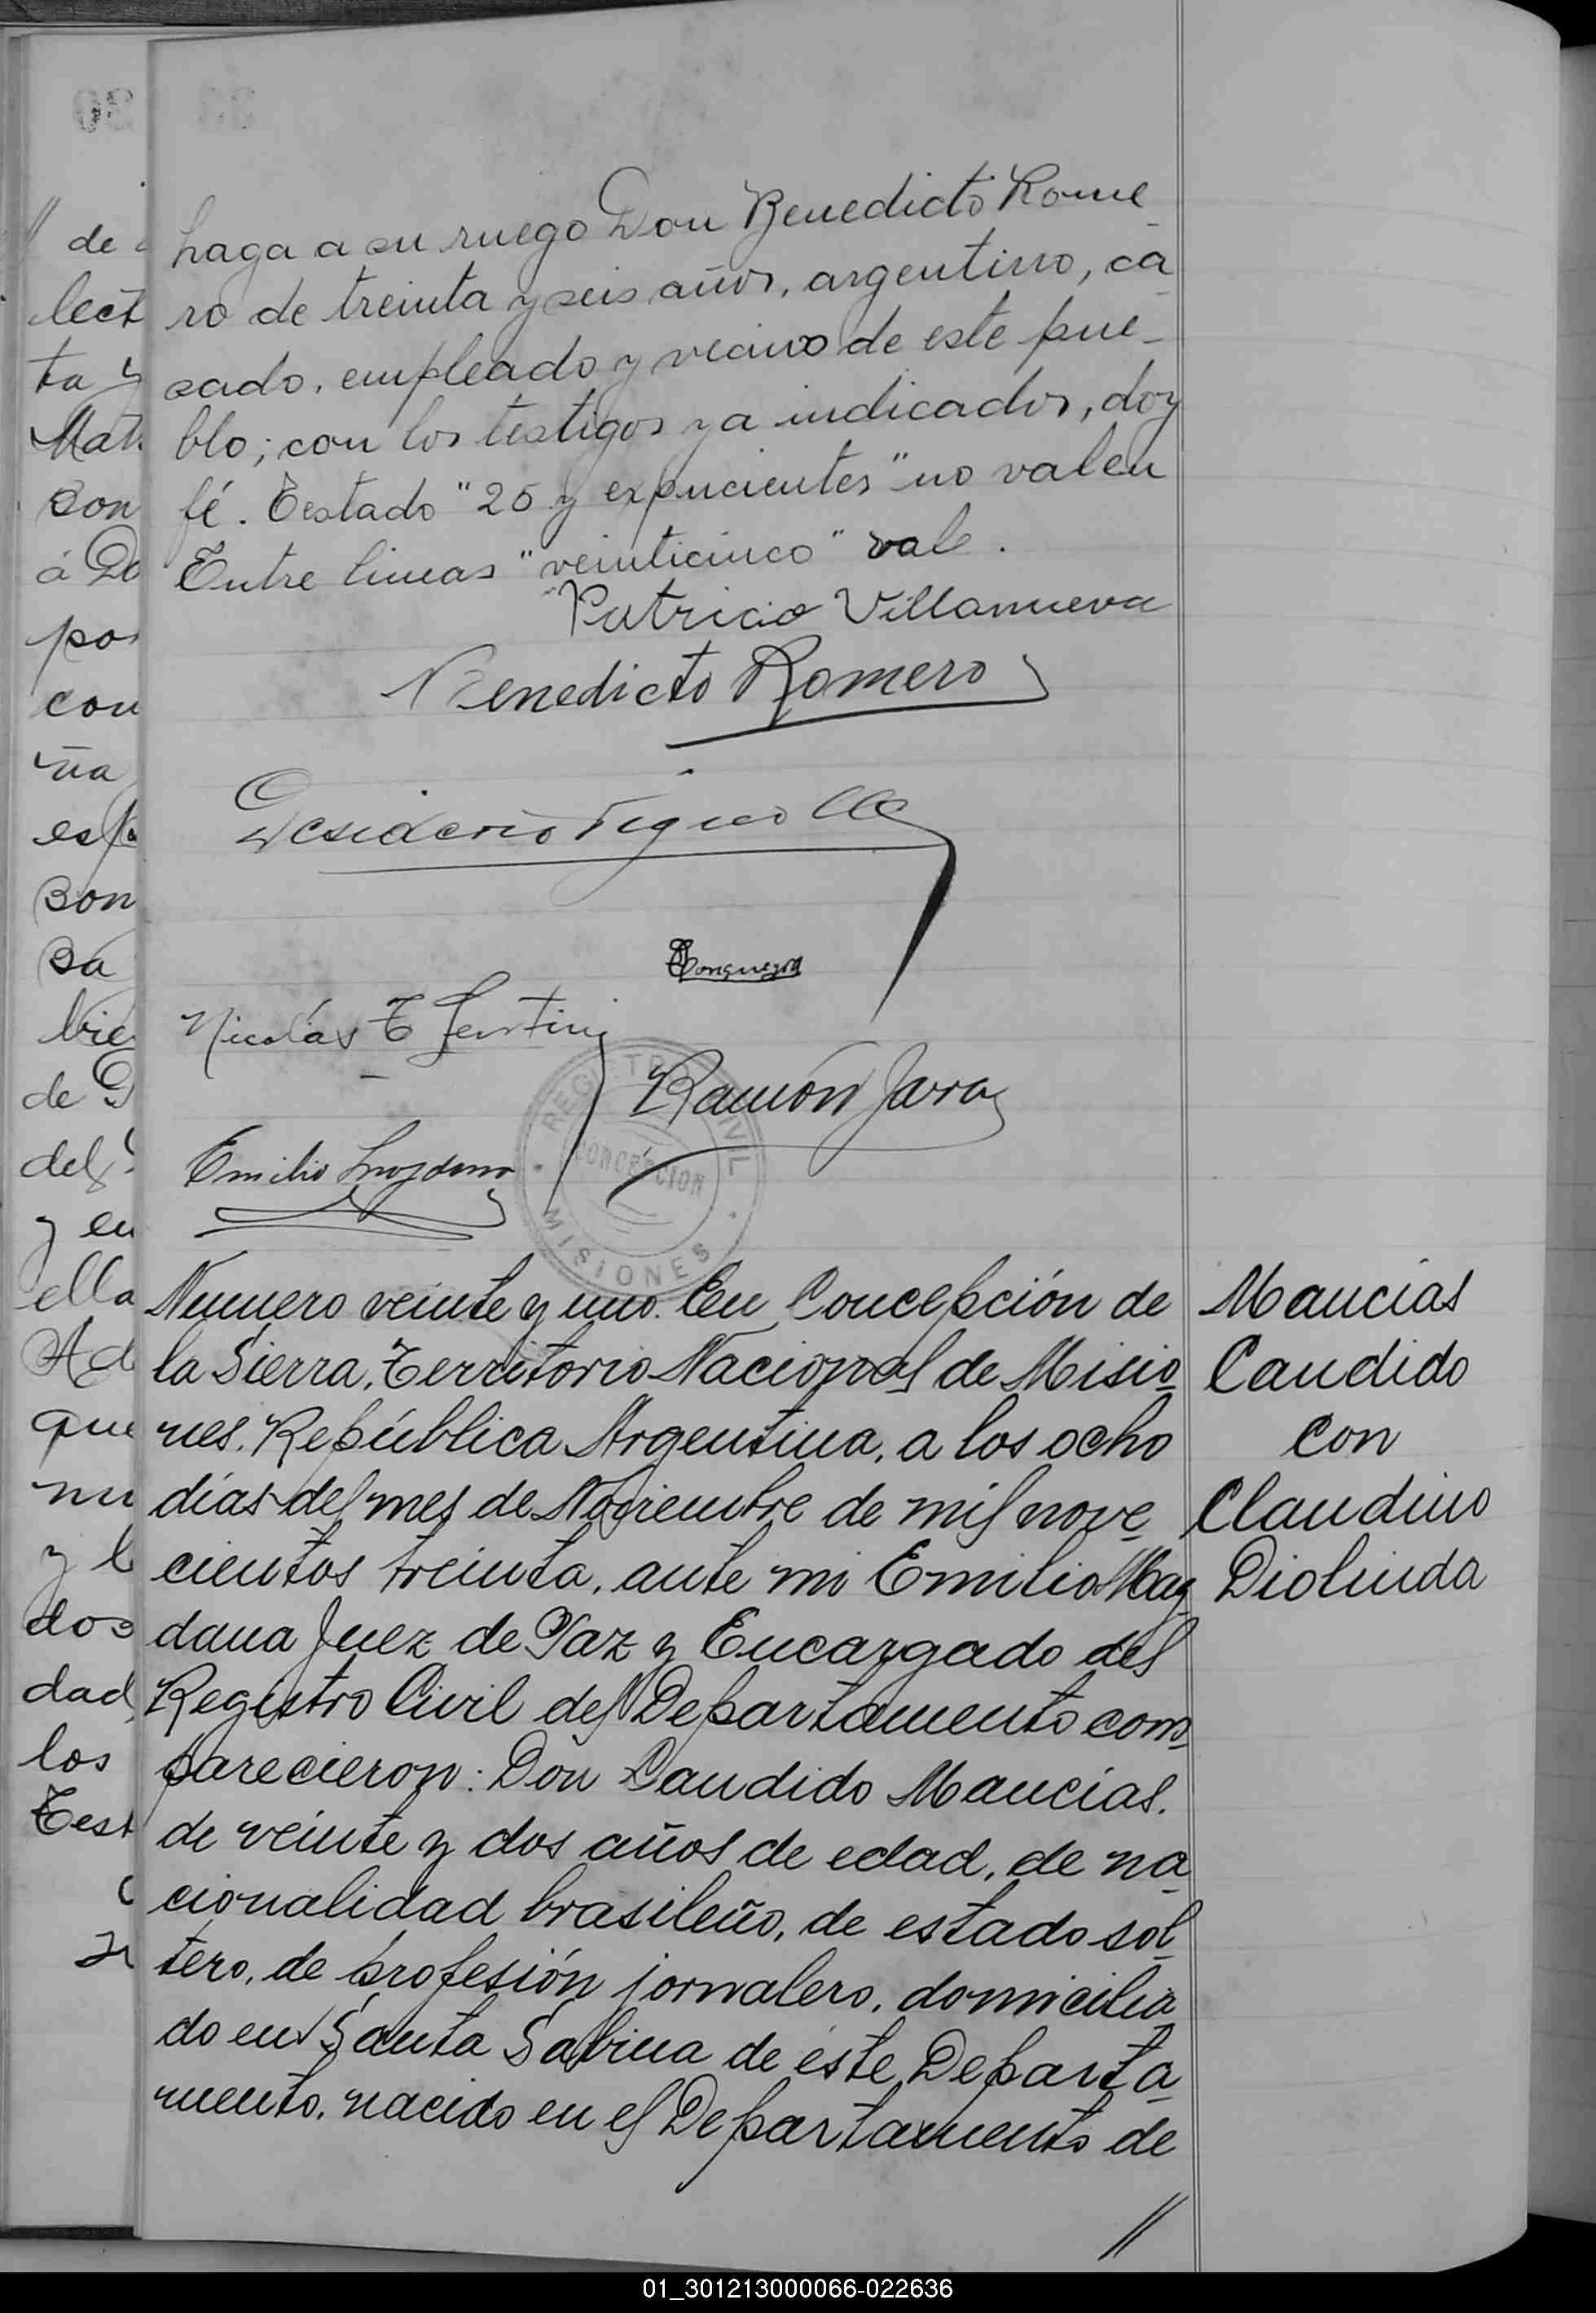 haga a su ruego Don Benedicto Rome
ro de treinta y seis años, argentino, ca
sado, empleado y vecino de este pue-
blo; con los testigos ya indicados, doy
fé. Testado "25 y expucientes" no valen
Entre lineas "veinticinco" vale.
Patricio Villanueva
Benedicto Romero
Desiderio
Nicolás T
Ramón Jara
REGISTRO CIVIL
CONCEPCION
MISIONES
Emilio
Numero veinte y uno. En Concepción de
la Sierra, Territorio Nacional de Misio
nes, República Argentina, a los ocho
días del mes de Noviembre de mil nove
cientos treinta, ante mi Emilio Mag
dana Juez de Paz y Encargado del
Registro Civil del Departamento com
parecieron: Don Candido Mancias,
de veinte y dos años de edad, de na
cionalidad brasileño, de estado sol
tero, de profesión jornalero, domicilia
do en Santa Sabina de este Departa
mento, nacido en el Departamento de
//
Mancias
Candido
con
Claudino
Diolinda
// de
lect
ta y
Mat
son
á Do
por
con
ña
esp
son
sa
bie
de
del
y en
ella
Ad
que
nu
y l
dos
dad,
los
Test
01_301213000066-022636